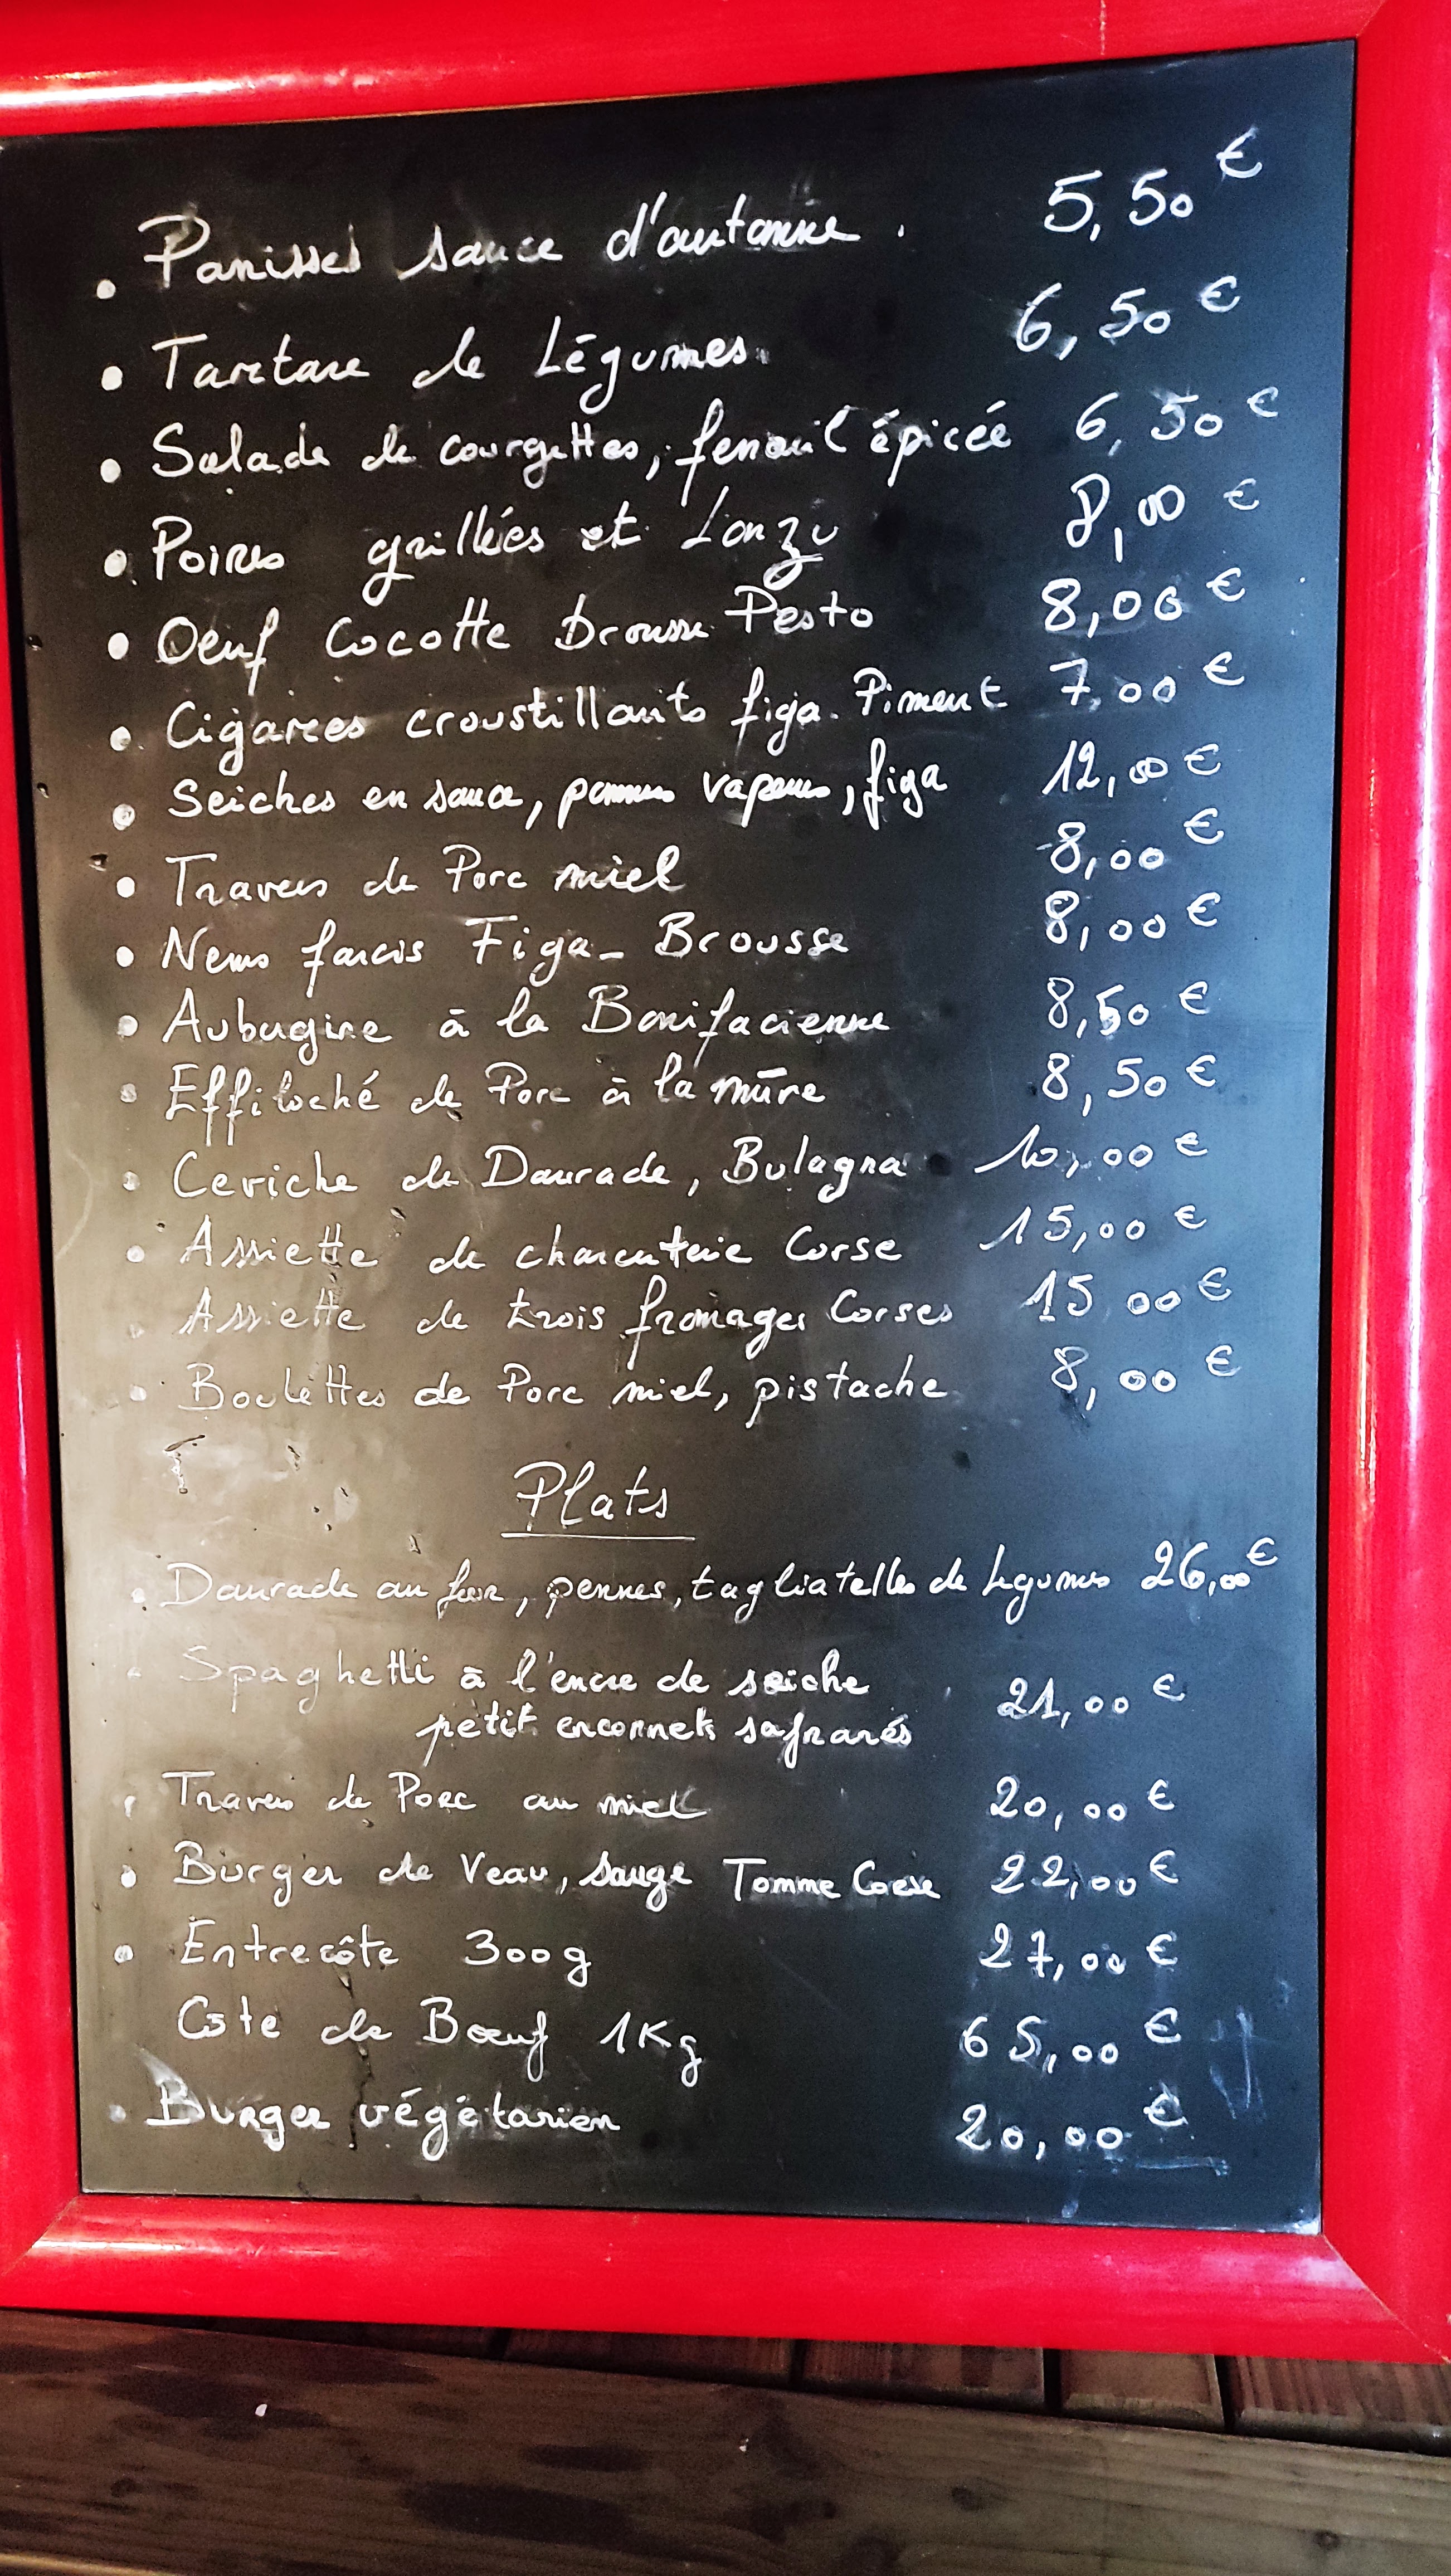 . Panisses sauce d'automne. 5,50 €
• Tartare de Légumes. 6,50 €
• Salade de courgettes, fenouil épicée 6,50 €
• Poires grillées et Lonzu 8,00 €
• Oeuf Cocotte brousse Pesto 8,00 €
• Cigares croustillants figa. Piment 7,00 €
• Seiches en sauce, pommes vapeurs, figa 12,00 €
• Travers de Porc miel 8,00 €
• Nems farcis Figa - Brousse 8,00 €
• Aubergine à la Bonifacienne 8,50 €
• Effiloché de Porc à la mûre 8,50 €
• Ceviche de Daurade, Bulagna 10,00 €
• Assiette de charcuterie Corse 15,00 €
• Assiette de trois fromages Corses 15 00 €
• Boulettes de Porc miel, pistache 8,00 €
Plats
• Daurade au four, pennes, tagliatelles de légumes 26,00 €
• Spaghetti à l'encre de seiche
petit encornets safranés 21,00 €
• Travers de Porc au miel 20,00 €
• Burger de Veau, sauge Tomme Corse 22,00 €
• Entrecôte 300g 27,00 €
Côte de Bœuf 1Kg 65,00 €
• Burger végétarien 20,00 €